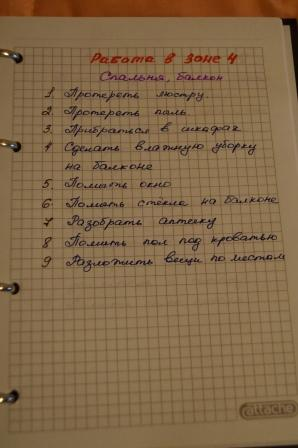 Работа в зоне 4
Спальня, балкон
1 Протереть люстру.
2. Протереть пыль
3. Прибраться в шкафах
4 Сделать влажную уборку
на балконе
5. Помыть окно
6 Помыть стекла на балконе
7 Разобрать аптечку
8 Помыть пол под кроватью
9 Разложить вещи по местам
attache